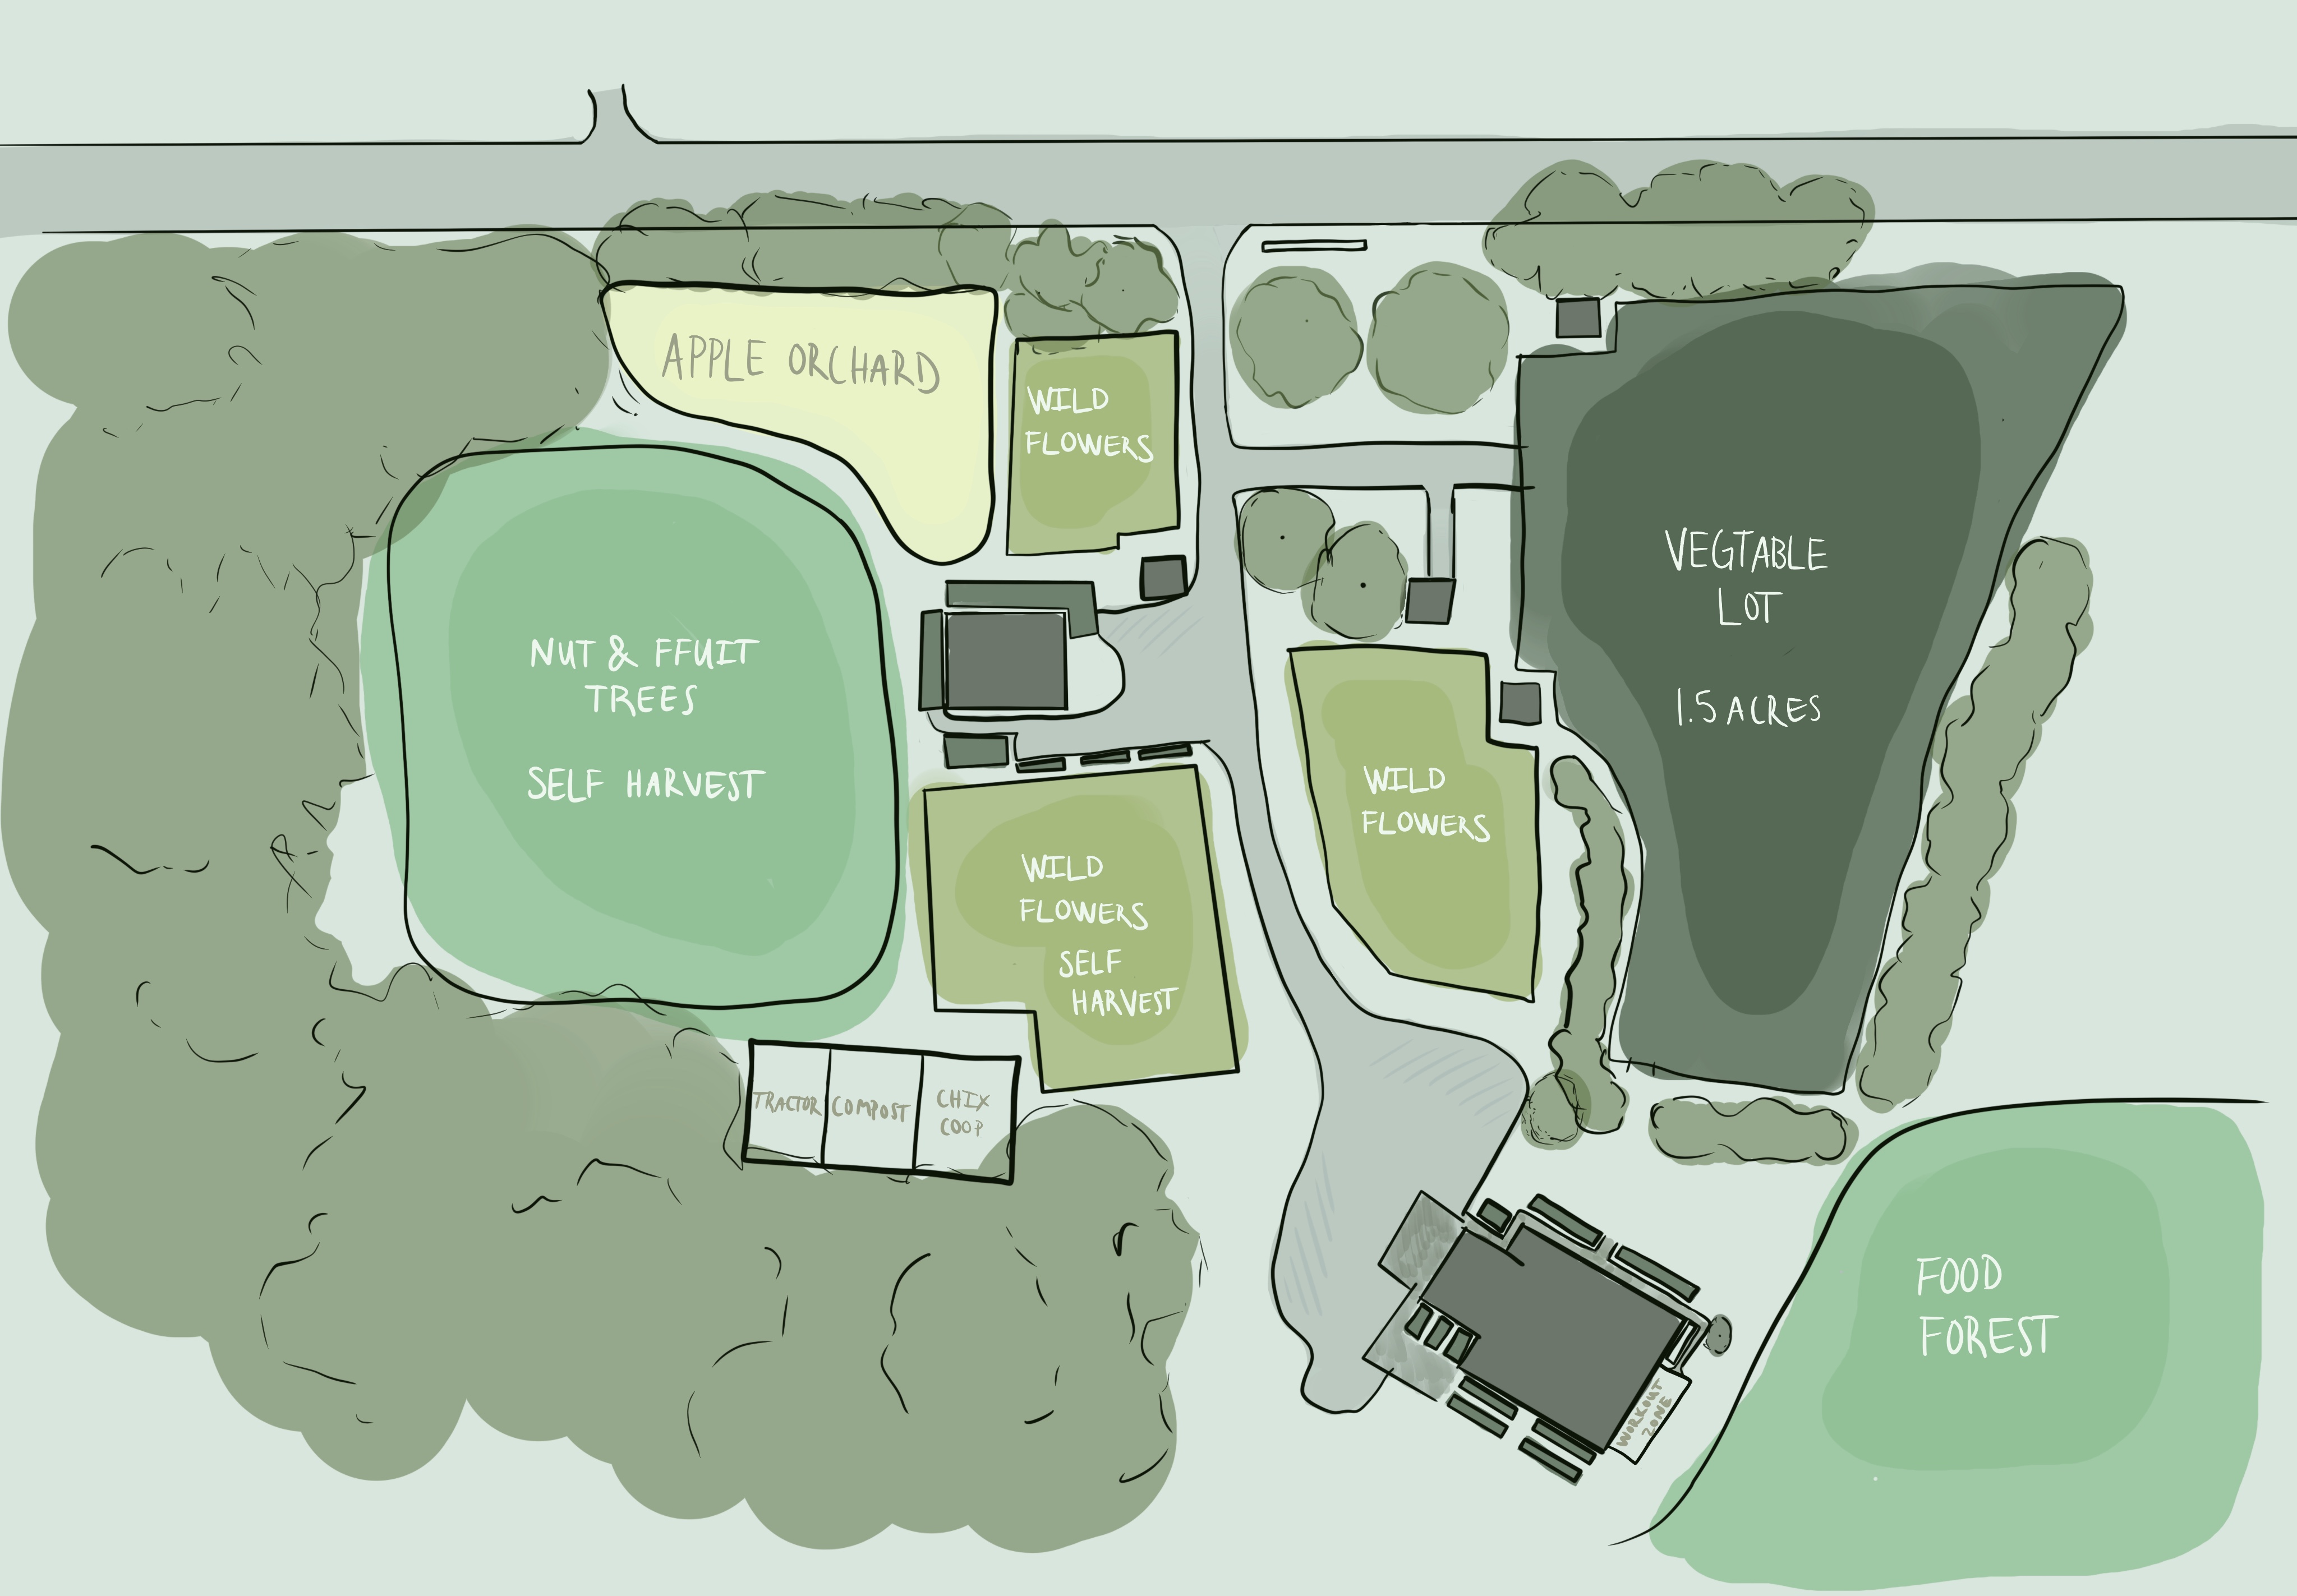 APPLE ORCHARD
WILD
FLOWERS
VEGTABLE
LOT
1.5 ACRES
NUT & FFUIT
TREES
SELF HARVEST
WILD
FLOWERS
WILD
FLOWERS
SELF
HARVEST
TRACTOR
COMPOST
CHIX
COOP
FOOD
FOREST
WORKOUT
ZONE